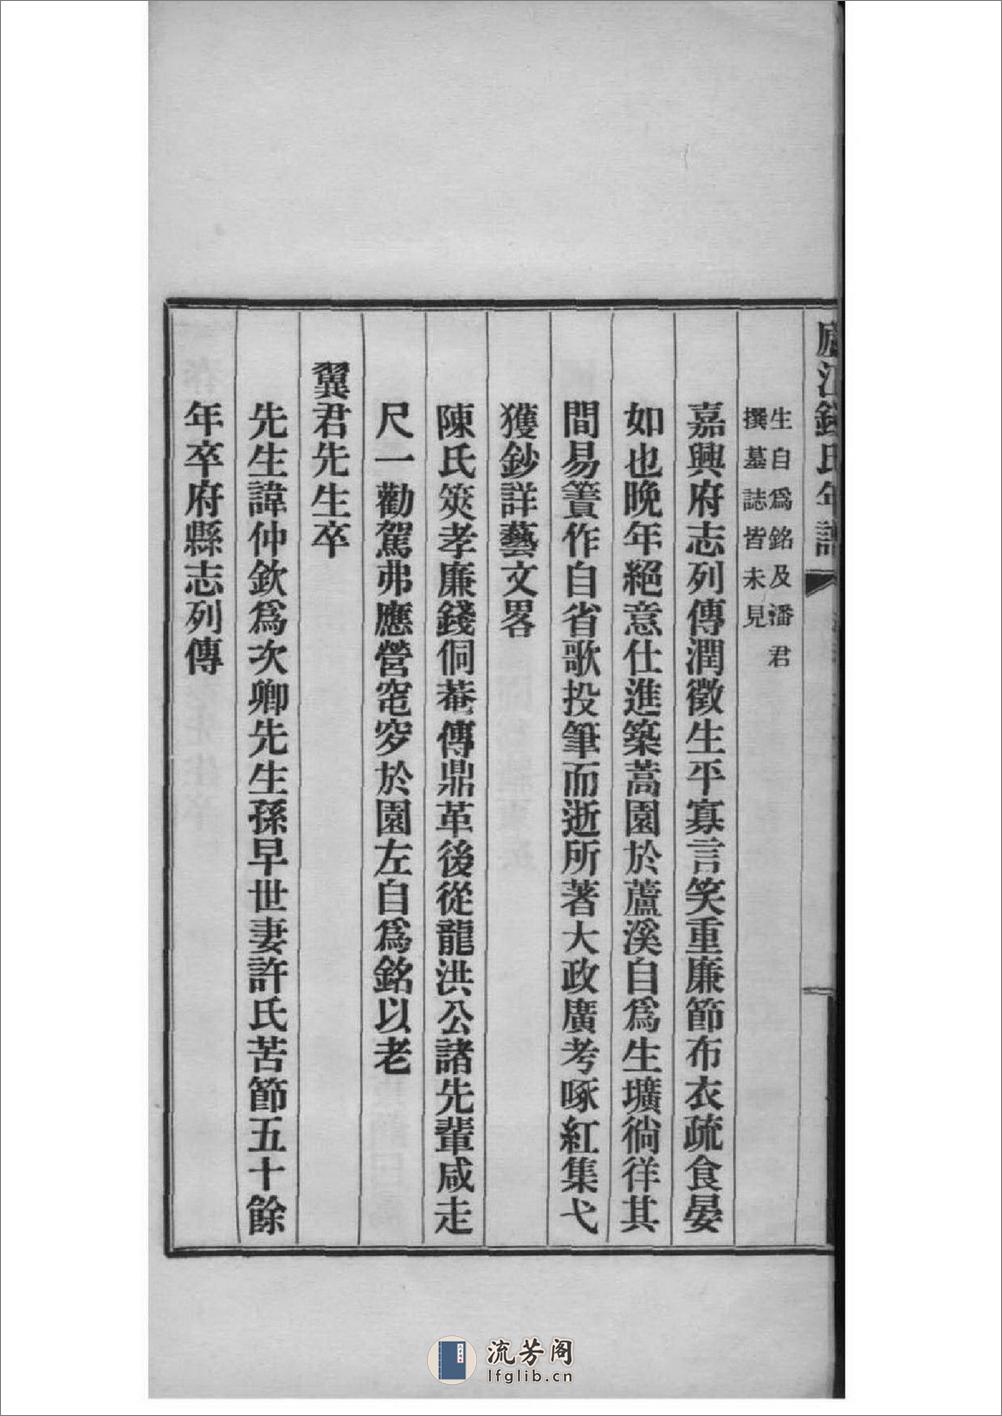 廬江錢氏年譜
生自爲銘及潘君
撰墓誌皆未見
嘉興府志列傳潤徵生平寡言笑重廉節布衣疏食晏
如也晚年絕意仕進築蒿園於蘆溪自爲生壙徜徉其
間易簀作自省歌投筆而逝所著大政廣考啄紅集弋
獲鈔詳藝文畧
陳氏筴孝廉錢侗菴傳鼎革後從龍洪公諸先輩咸走
尺一勸駕弗應營窀穸於園左自爲銘以老
翼君先生卒
先生諱仲欽爲次卿先生孫早世妻許氏苦節五十餘
年卒府縣志列傳
流芳阁
lfglib.cn